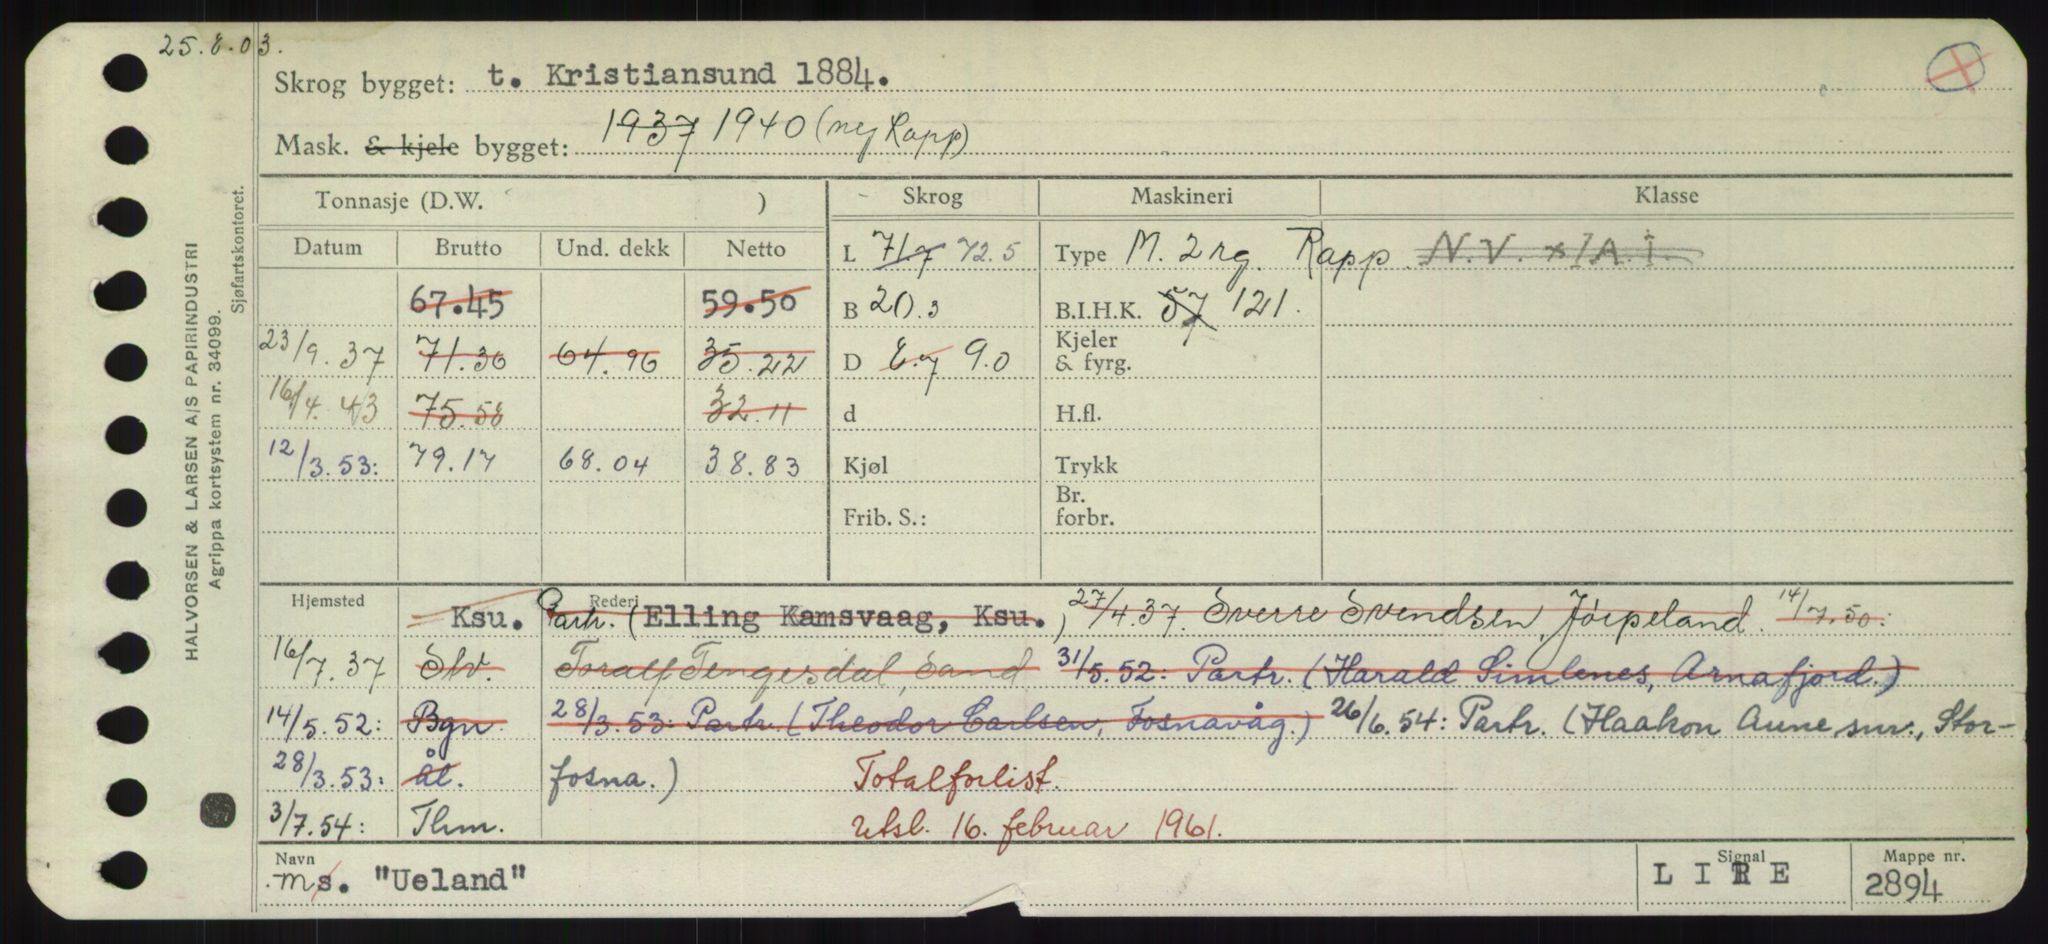 25.8.03.
Skrog bygget: t. Kristiansund 1884.
Mask. & kjele bygget: 1937 1940 (ny Rapp)
Tonnasje (D.W. ) Skrog Maskineri Klasse
Datum Brutto Und. dekk Netto L 71.7 72.5 Type M. 2 rg. Rapp N.V. x1A.I.
67.45 59.50 B 20.3 B.I.H.K. 57 121.
23/9.37 71.36 64.96 35.22 D 8.7 9.0 Kjeler & fyrg.
16/4.43 75.58 32.11 d H.fl.
12/3.53: 79.17 68.04 38.83 Kjøl Trykk
Frib. S.: Br. forbr.
Hjemsted Ksu. Rederi Partr. (Elling Kamsvaag, Ksu.) 27/4.37. Sverre Svendsen, Jörpeland. 14/7.50:
16/7.37 Stv. Toralf Tengesdal, Sand 31/5.52: Partr. (Harald Simlenes, Arnafjord.)
14/5.52: Bgn. 28/3.53: Partr. (Theodor Carlsen, Fosnavåg.) 26/6.54: Partr. (Haakon Aune snr., Stor-
28/3.53: ål. fosna.) Totalforlist.
3/7.54: Thm. utsl. 16. februar 1961.
Navn Signal Mappe nr.
ms. "Ueland" LIRE 2894
HALVORSEN & LARSEN A/S PAPIRINDUSTRI
Agrippa kortsystem nr. 34099.
Sjøfartskontoret.